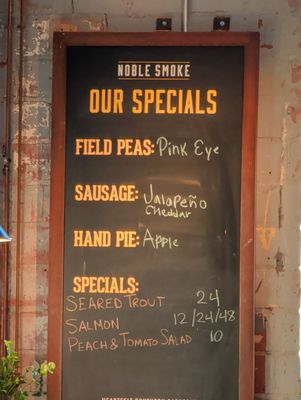 NOBLE SMOKE
OUR SPECIALS
FIELD PEAS: Pink Eye
SAUSAGE: Jalapeño
Cheddar
HAND PIE: Apple
SPECIALS:
SEARED TROUT 24
SALMON 12/24/48
PEACH & TOMATO SALAD 10